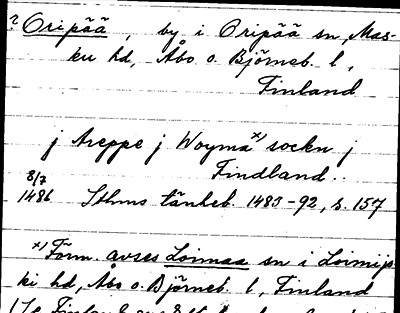 ? Oripää, by i Oripää sn, Mas-
ku hd, Åbo o. Björneb. l,
Finland
j Areppe j Woyma x) sockn j
Findland..
8/7
1486 Sthms tänkeb. 1483-92, s. 157
x) Förm. avses Loimaa sn i Loimijo
ki hd, Åbo o. Björneb. l, Finland